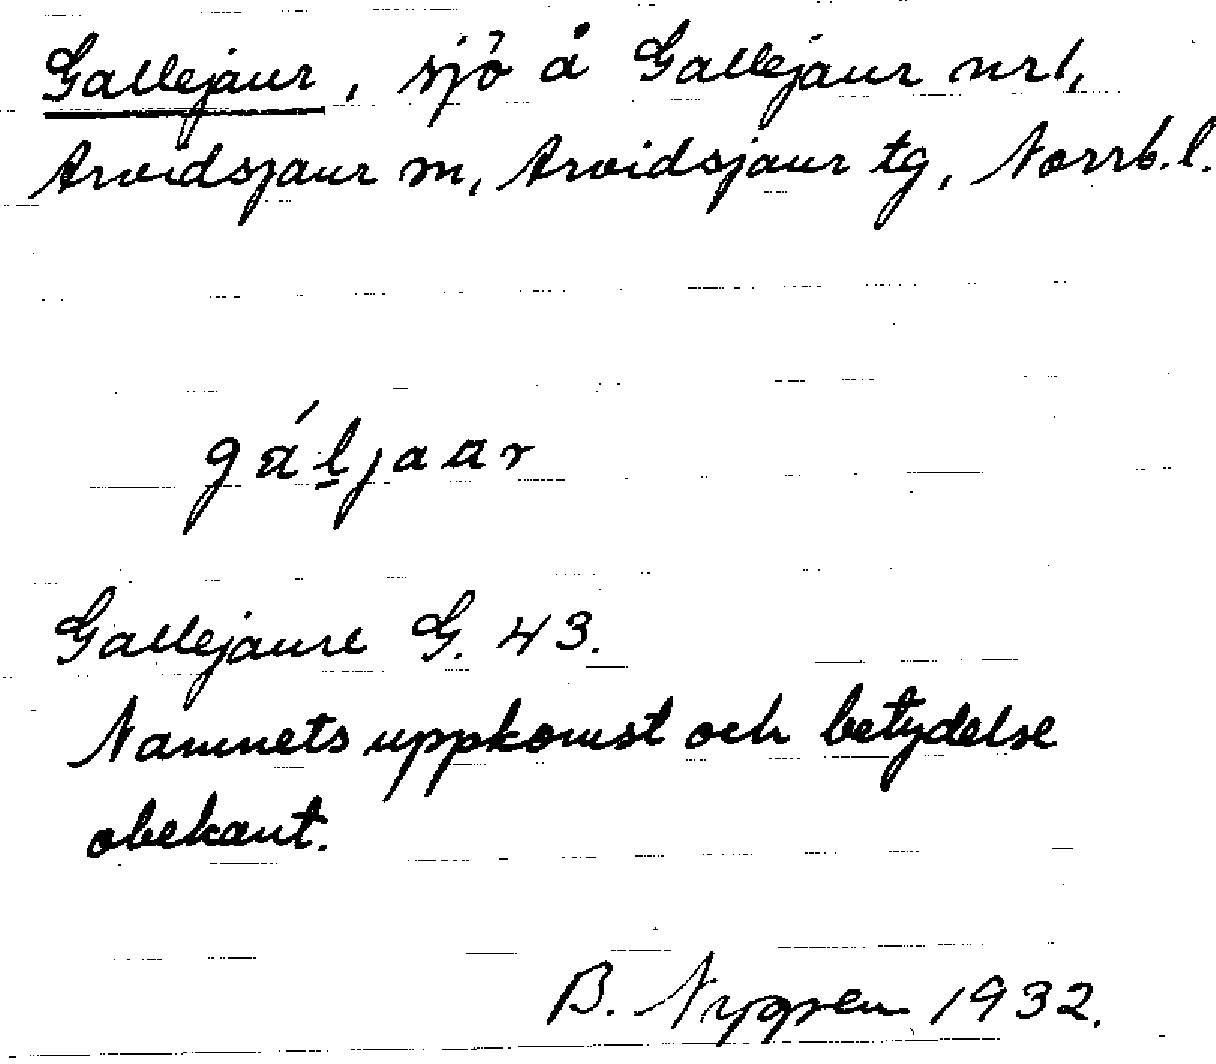 Gallejaur, sjö å Gallejaur nr 1,
Arvidsjaur sn, Arvidsjaur tg, Norrb. l.
gáḻjaar
Gallejaure G. 43.
Namnets uppkomst och betydelse
obekant.
B. Nyppen 1932.